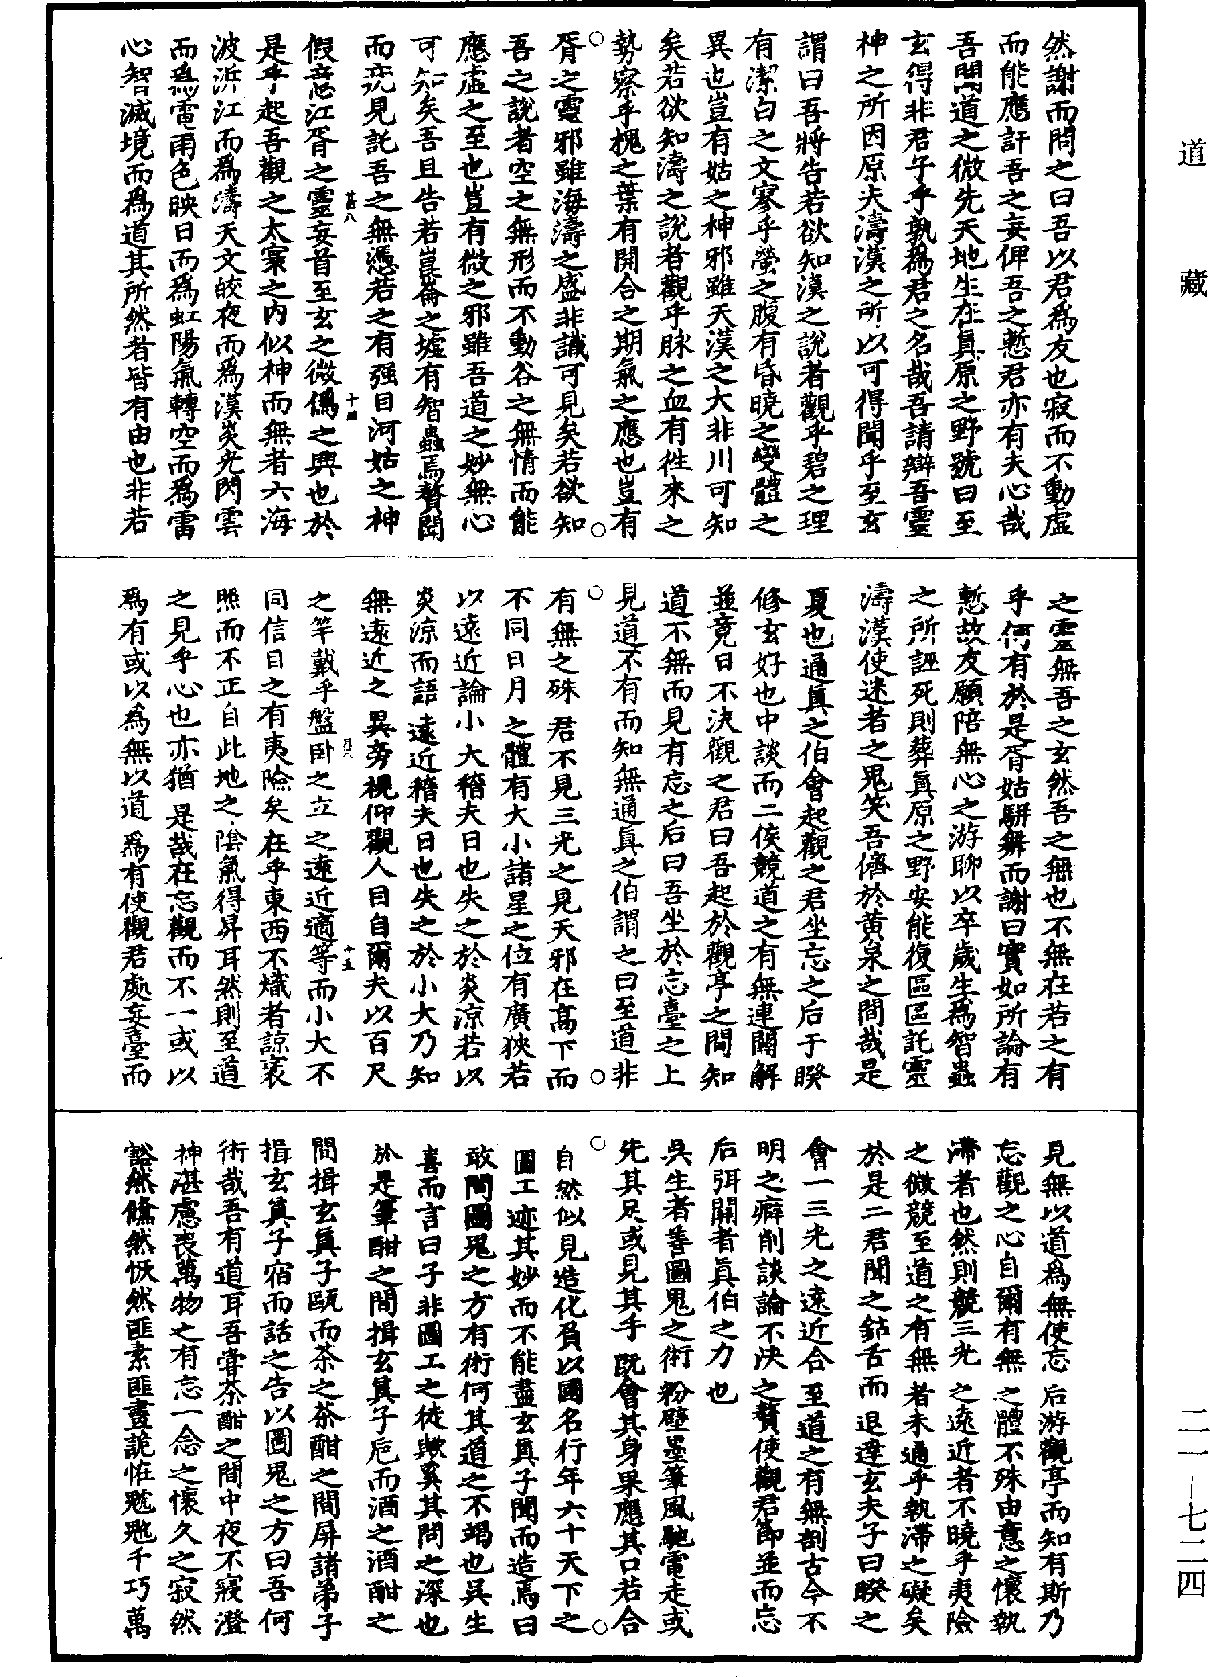 道藏
然謝而問之曰吾以君為友也寂而不動虛
而能應訐吾之妄俾吾之慙君亦有夫心哉
吾聞道之微先天地生在真原之野號曰至
玄得非君子乎孰為君之名哉吾請辯吾靈
神之所因原夫濤漢之所以可得聞乎至玄
謂曰吾將告若欲知漢之說者觀乎碧之理
有潔白之文察乎螢之腹有昏曉之變體之
異也豈有姑之神邪雖天漢之大非川可知
矣若欲知濤之說者觀乎脉之血有徃來之
勢察乎槐之葉有開合之期氣之應也豈有
胥之靈邪雖海濤之盛非識可見矣若欲知
吾之說者空之無形而不動谷之無情而能
應虛之至也豈有微之邪雖吾道之妙無心
可知矣吾且告若崑崙之墟有智蟲焉瞽聞
而䀮見託吾之無憑若之有強目河姑之神
假意江胥之靈妄首至玄之微僞之興也於
是乎起吾觀之太寥之內似神而無者六海
波泝江而為濤天文皎夜而為漢炎光閃雲
而為電雨色映日而為虹陽氣轉空而為雷
心智滅境而為道其所然者皆有由也非若
甚八
十四
之靈無吾之玄然吾之無也不無在若之有
乎何有於是胥姑駢舞而謝曰實如所論有
慙故友願陪無心之游聊以卒歲生為智蟲
之所誣死則葬真原之野安能復區區託靈
濤漢使迷者之鬼笑吾儕於黃泉之間哉是
夏也通真之伯會起觀之君坐忘之后于睽
修玄好也中談而二俟競道之有無連關解
並竟日不決觀之君曰吾起於觀亭之間知
道不無而見有忘之后曰吾坐於忘臺之上
見道不有而知無通真之伯謂之曰至道非
有無之殊君不見三光之見天邪在高下而
不同日月之體有大小諸星之位有廣狹若
以遠近論小大稽夫日也失之於炎涼若以
炎涼而語遠近稽夫日也失之於小大乃知
無遠近之異旁視仰觀人目自爾夫以百尺
之竿戴乎盤臥之立之遠近適等而小大不
同信目之有夷險矣在乎東西不熾者諒衺
照而不正自此地之陰氣得昇耳然則至道
之見乎心也亦猶是哉在忘觀而不一或以
為有或以為無以道為有使觀君處妄臺而
十五
見無以道為無使忘后游觀亭而知有斯乃
忘觀之心自爾有無之體不殊由意之懷執
滯者也然則競三光之遠近者不曉乎夷險
之微競至道之有無者未通乎執滯之礙矣
於是二君聞之鉆舌而退達玄夫子曰睽之
會一三光之遠近合至道之有無剖古今不
明之癖削談論不決之贅使觀君節並而忘
后弭關者真伯之力也
吳生者善圖鬼之術粉壁墨筆風馳電走或
先其足或見其手旣會其身果應其口若合
自然似見造化負以國名行年六十天下之
圖工迹其妙而不能盡玄真子聞而造焉曰
敢問圖鬼之方有術何其道之不竭也吳生
喜而言曰子非圖工之徒歟奚其問之深也
於是筆酣之間揖玄真子卮而酒之酒酣之
間揖玄真子甌而茶之茶酣之間屏諸弟子
揖玄真子宿而話之告以圖鬼之方曰吾何
術哉吾有道耳吾甞茶酣之間中夜不寢澄
神湛慮喪萬物之有忘一念之懷久之寂然
豁然儵然怳然匪素匪畫詭恠魑魅千巧萬
二一－七二四